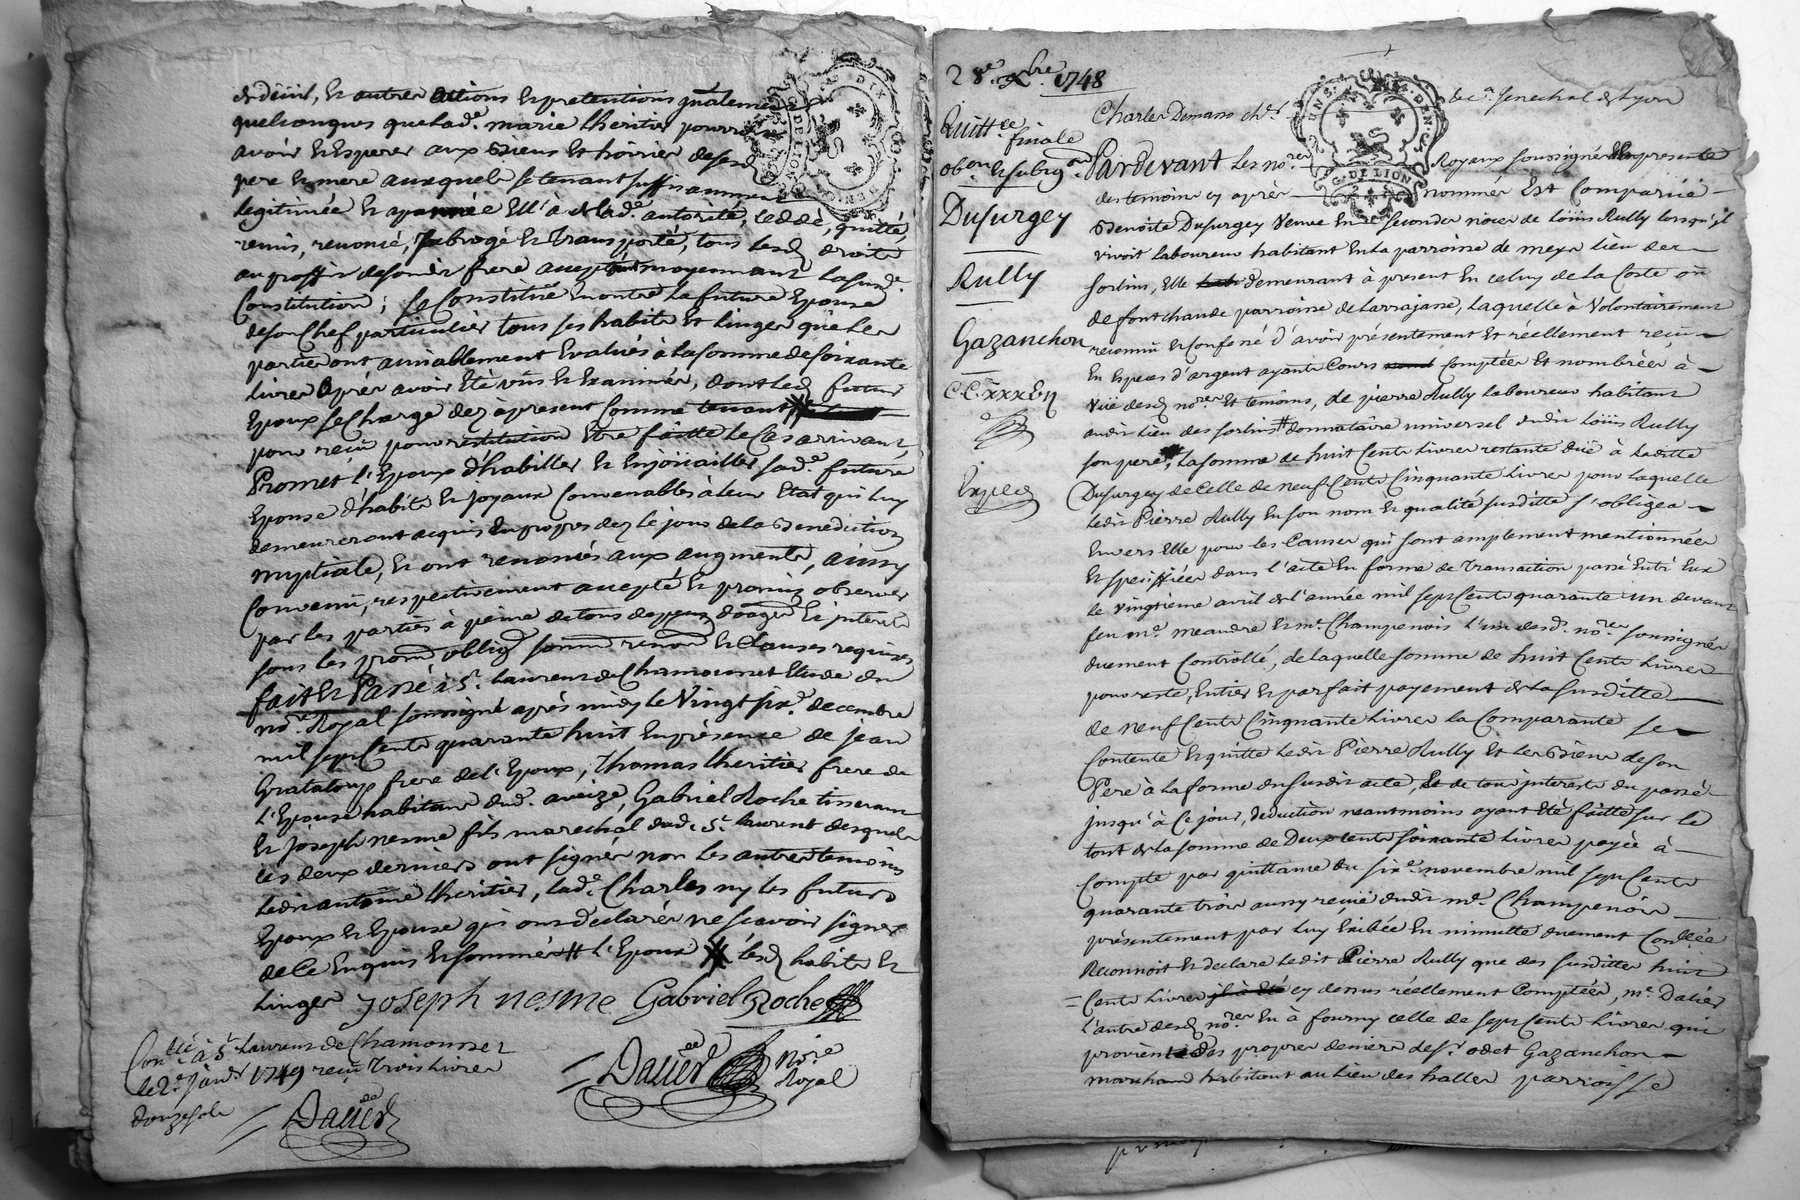 de deüil, et autres actions et pretentions gñalement
quelconques que lad.e marie lheritier pourroit
avoir et esperer aux biens et hoiries de sesd
pere et mere auxquels se tenant suffisamment
legitimée et apanée ell'a de lad.e autorité, ceddé, quitté,
remis, renoncé, subrogé et transporté, tous lesd droits
au proffit de sondit frere acceptant moyennant lasusd.e
Constitution; se Constitue en outre la future Epouse
de son Chef particulier tous ses habits et linges que les
parties ont amiablement Evalués à la somme de soixante
livres après avoir été vüs et Examinés, dont led futur
Epoux se charge dez àpresent comme tenant
pour reçu pour restitution Etre faitte le Cas arrivant,
Promet l'Epoux d'habiller et enjoüailler sad.e future
Epouse d'habits et joyaux Convenables à leur Etat qui luy
demeureront acquis en propres dez le jour de la Benediction
nuptiale, et ont renoncés aux augments, ainsy
Convenu, respectivement accepté et promis observer
par les parties à peine de tous depens domages et interets
sous les prom oblig soum renon et Clauses requises
fait et Passé à S.t laurent de Chamousset Etude du
no.re Royal soussigné après midy le Vingt six.e decembre
mil sept Cents quarante huit En présence de jean
Grataloup frere de l'Epoux, Thomas lheritier frere de
l'Epouse habitans dud. aveize, Gabriel Roche tisserant
et joseph nesme fils marechal dud. S.t laurent desquels
les deux derniers ont signés non les autres temoins
ledit antoine lheritier, lad.e Charles ny les futurs
Epoux et Epouse qui ont déclarés ne scavoir signer
de Ce Enquis et sommés # l'Epoux lesd habits et
linges joseph nesme Gabriel Roche
Con.llé à S.t laurent de Chamousset
le 2.e janv.r 1749 reçu trois livres
douze sols
Dalier
Dalier No.re
Royal
28.e Xbre. 1748
Quitt.ce
finale
ob.on et subrg.on
Dusurgey
Rully
Gazanchon
Exped
Charles Demasso ch.r
senechal de Lyon
Pardevant les no.res Royaux soussignés En presence
des temoins cy après nommés Est Comparüe
Benoite Dusurgey Veuve En secondes nôces de Loüis Rully lorsqu'il
vivoit laboureur habitant En la parroisse de meys lieu des
sorlins, Elle demeurant à present En celuy de la Coste ou
de font chaude parroisse de Larrajasse, laquelle à Volontairement
reconnû et confessé d'avoir présentement et réellement reçu
En Especes d'argent ayants Cours comptées et nombrées à
vüe desd no.res et temoins, de pierre Rully laboureur habitant
audit lieu des sorlins # donnataire universel dudit Loüis Rully
son pere, la somme de huit Cents livres restante düe à laditte
Dusurgey de Celle de neuf Cents Cinquante livres pour laquelle
ledit Pierre Rully En son nom et qualité susditte s'obligea
Envers Elle pour les Causes qui sont amplement mentionnées
et speciffiées dans l'acte En forme de transaction passé Entr'Eux
le vingtieme avril de l'année mil sept Cents quarante un devant
feu m.e meandre et m.e Champenois l'un desd. no.res soussignés
duement Controllé, de laquelle somme de huit Cents livres
pour reste, Entier et parfait payement de la susditte
de neuf Cents Cinquante livres la Comparante se
Contente et quitte ledit Pierre Rully et les Biens de son
Pere à la forme du susdit acte, de tous interets du passé
jusqu'à ce jour, déduction neantmoins ayant été faitte sur le
tout de la somme de Deux cents soixante livres payée à
compte par quittance du six.e novembre mil sept Cents
quarante trois aussy reçüe dudit m.e Champenois
présentement par luy Exibée En minutte duement Con.llée
Reconnoit et declare ledit Pierre Rully que des susdittes huit
Cents livres cy dessus réellement Comptées, m.e Dalier
l'autre desd no.res En à fourny celle de sept Cents livres qui
provient des propres deniers de S.r odet Gazanchon
marchand habitant au lieu des halles parroisse